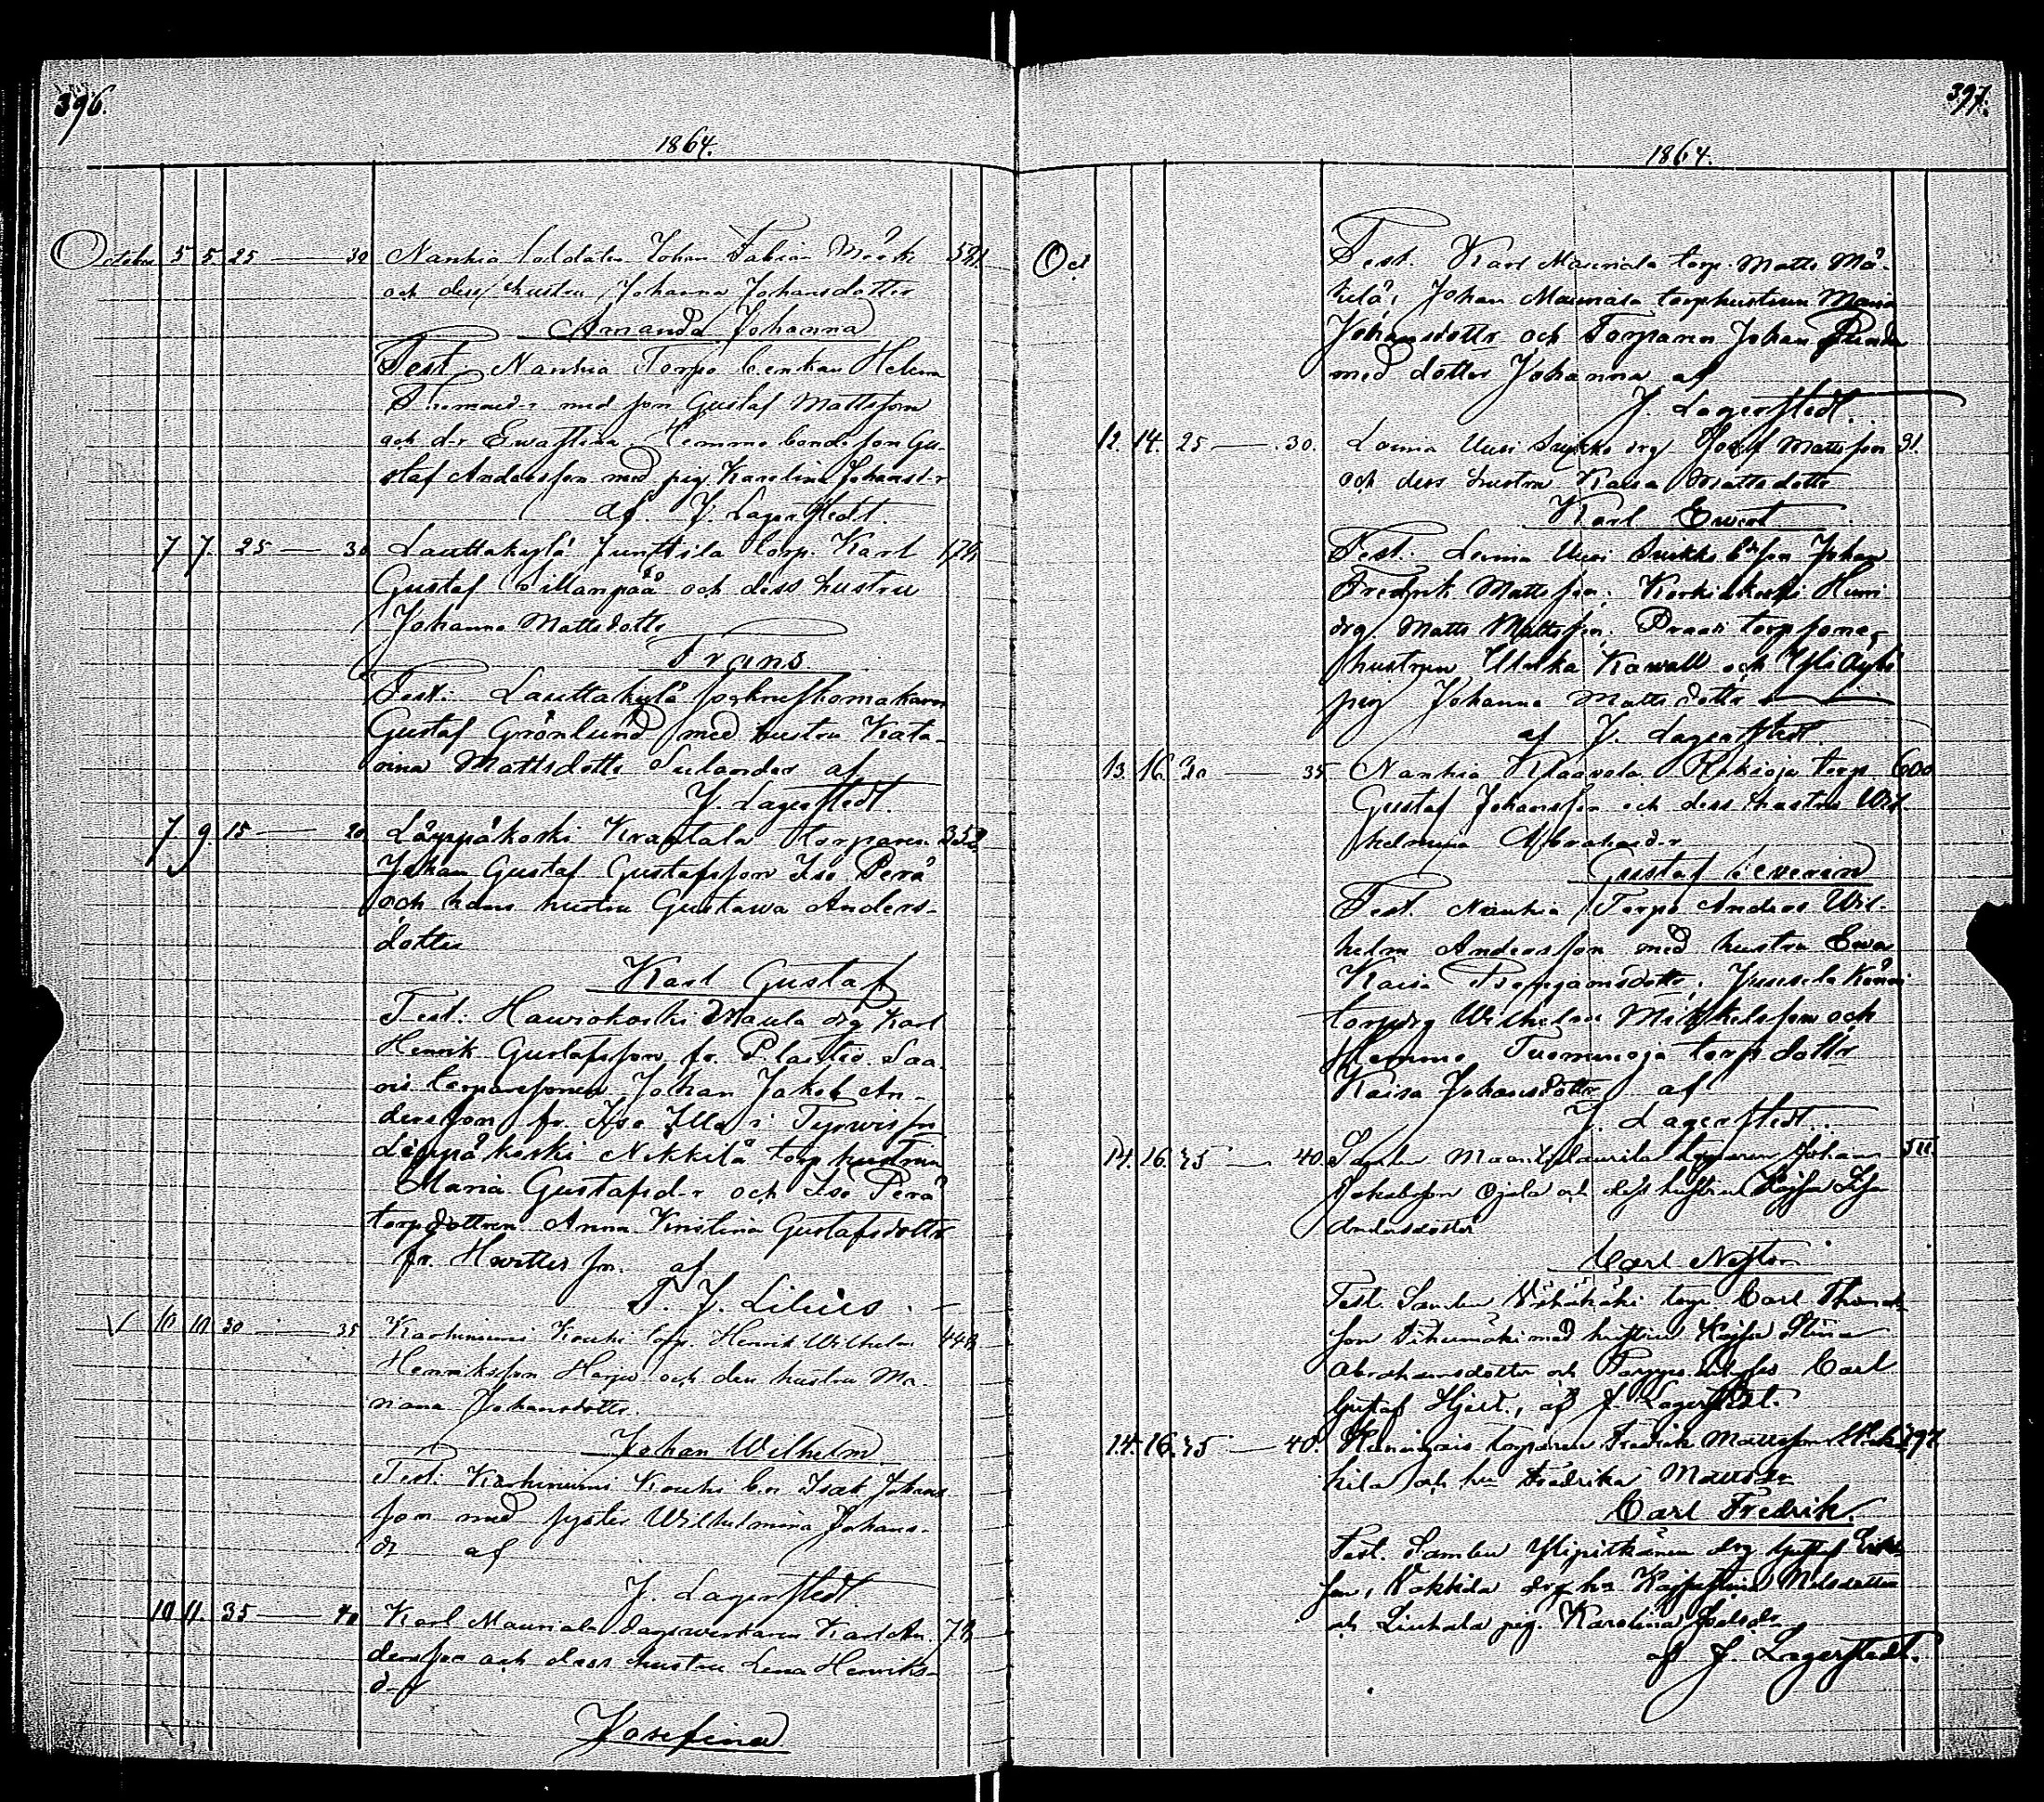 396.
1864.
October 5 5. 25 — 30 Nanhia Soldaten Johan Fabian 581
och dess hustru Johanna Johansdotter
Amanda Johanna
Test. Nanhia Torpo Helena
med son Gustaf Mattsson
och d-r Ewastina. Hemmo bondeson Gu-
staf Andersson med pig. Karolina Johansd-r
af J. Lagerstedt.
7 7. 25 — 30 Lauttakylä Junttila torp. Karl
Gustaf Sillanpää och dess hustru
Johanna Mattsdotter
Frans
Test: Lauttakylä
Gustaf Grönlund med hustru Kata-
rina Mattsdotter af
J. Lagerstedt.
7 9. 15 — 20 Löyppäkoski Krantala torparen 352
Johan Gustaf Gustafsson Iso Perä
och hans hustru Gustawa Anders-
dotter
Karl Gustaf
Test: Haurokoski Maula drg Karl
Henrik Gustafsson fr. Saa-
ris torparesonen Johan Jakob An-
dersson fr. i Tyrwis sn
Löyppäkoski Nikkilä torphustrun
Maria Gustafsd-r och Iso Perä
torpdottren Anna Kristina Gustafsdotter
fr. Hwittis sn. af
J. Lilius
10 10 30 — 35 Karhiniemi Kouhi torp. Henrik Wilhelm 448
Henriksson Harju och dess hustru Ma-
riana Johansdotter.
Johan Wilhelm
Test: Karhiniemi Kouhi b.n Isak Johans-
son med syster Wilhelmina Johans-
dr af
J. Lagerstedt.
10 11. 35 — 40 Karl Mauriala dagswerkaren Karl An- 78
dersson och dess hustru Lena Henriks-
d-r
Josefina
397.
1864.
Oct
Test. Karl Mauriala torp. Matts Mä-
kelä, Johan Mauriala torphustrun Maria
Johansdotter och Torparen Johan
med dotter Johanna af
J. Lagerstedt.
12. 14. 25 — 30. Loima Uusi Suikko drg Josef Mattsson 31.
och dess hustru Kaisa Mattsdotter
Karl Ewert
Test. Loima Uusi Suikko b.son Johan
Fredrik Mattsson; Korkiakoski
drg. Matts Mattsson; torpsones
hustrun Ulrika Kawall och
pig Johanna Mattsdotter
af J. Lagerstedt.
13. 16. 30 — 35 Nanhia Klaavola torp. 600
Gustaf Johansson och dess hustru Wil-
helmina Abrahamsd-r
Gustaf Severin
Test. Nanhia Torpo Anders Wil-
helm Andersson med hustru Ewa
Kaisa Benjamsdotter; Jussila
torpdrg Wilhelm Mikkelsson och
Hemmo Tuominoja torpdotter
Kaisa Johansdotter af
J. Lagerstedt.
14. 16. 35 — 40. Sambu torparen Johan 511
Jakobsson Ojala och dess hustru Kajsa Lisa
Andersdotter
Carl Nestor
Test. Sambu torp. Carl Thomas-
son med hustrun Kajsa Stina
Abrahamsdotter och Carl
Gustaf Hjert., af J. Lagerstedt.
14. 16. 35 — 40. torparen Fredrik Mattsson 797.
och hu Fredrika Mattsdr
Carl Fredrik.
Test. Sambu Ylipitkänen drg Gustaf Eriks-
son, drg. hu Kajsastina Nilsdotter
och Liuhala pig. Karolina
af J. Lagerstedt.